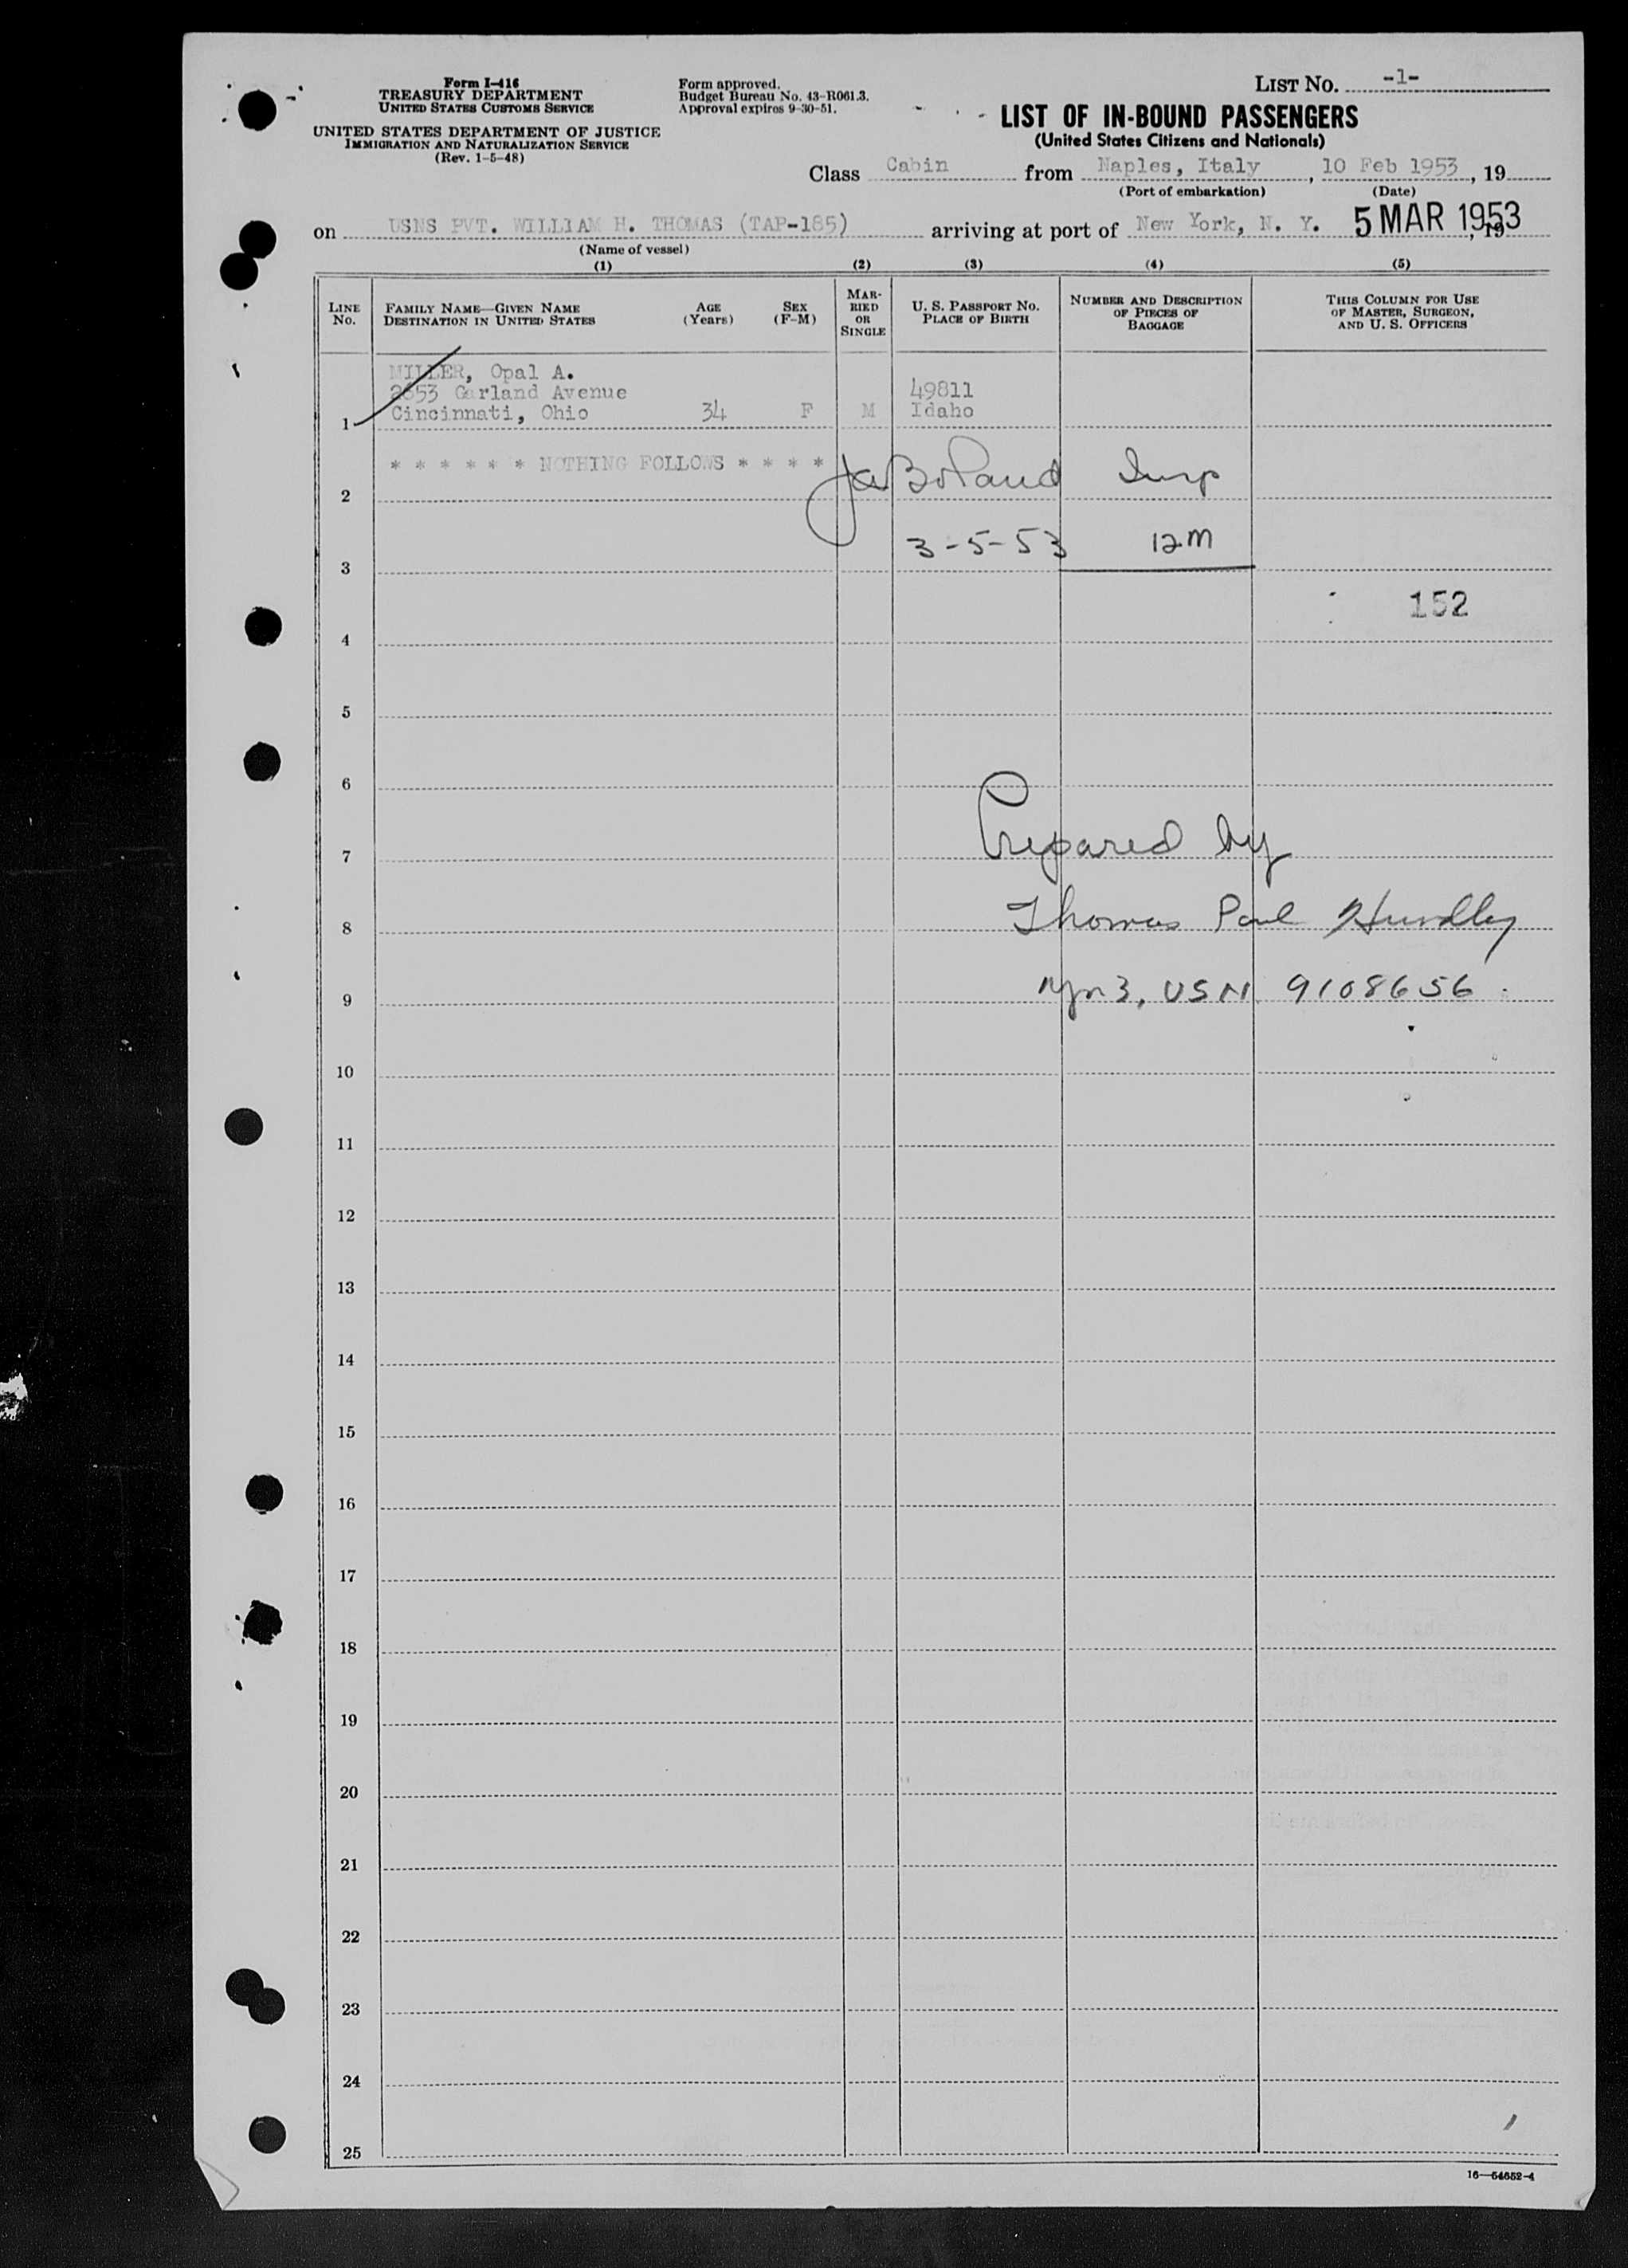 Form I-416
TREASURY DEPARTMENT
UNITED STATES CUSTOMS SERVICE
UNITED STATES DEPARTMENT OF JUSTICE
IMMIGRATION AND NATURALIZATION SERVICE
(Rev. 1-5-48)
Form approved.
Budget Bureau No. 43-R061.3.
Approval expires 9-30-51.
LIST No. -1-
LIST OF IN-BOUND PASSENGERS
(United States Citizens and Nationals)
Class Cabin from Naples, Italy, 10 Feb 1953, 19
(Port of embarkation) (Date)
on USNS PVT. WILLIAM H. THOMAS (TAP-185) arriving at port of New York, N. Y. 5 MAR 1953, 19
(Name of vessel)
(1) (2) (3) (4) (5)
LINE No.
FAMILY NAME—GIVEN NAME
DESTINATION IN UNITED STATES
AGE (Years)
SEX (F-M)
MARRIED OR SINGLE
U. S. PASSPORT No.
PLACE OF BIRTH
NUMBER AND DESCRIPTION
OF PIECES OF
BAGGAGE
THIS COLUMN FOR USE
OF MASTER, SURGEON,
AND U. S. OFFICERS
MILLER, Opal A.
2653 Garland Avenue 49811
1 Cincinnati, Ohio 34 F M Idaho
* * * * * * NOTHING FOLLOWS * * * *
Boland Insp
2
3-5-53 12M
3
152
4
5
6
Prepared by
7
Thomas Paul Hundley
8
Yn3, USN 9108656.
9
10
11
12
13
14
15
16
17
18
19
20
21
22
23
24
25
16—54652-4